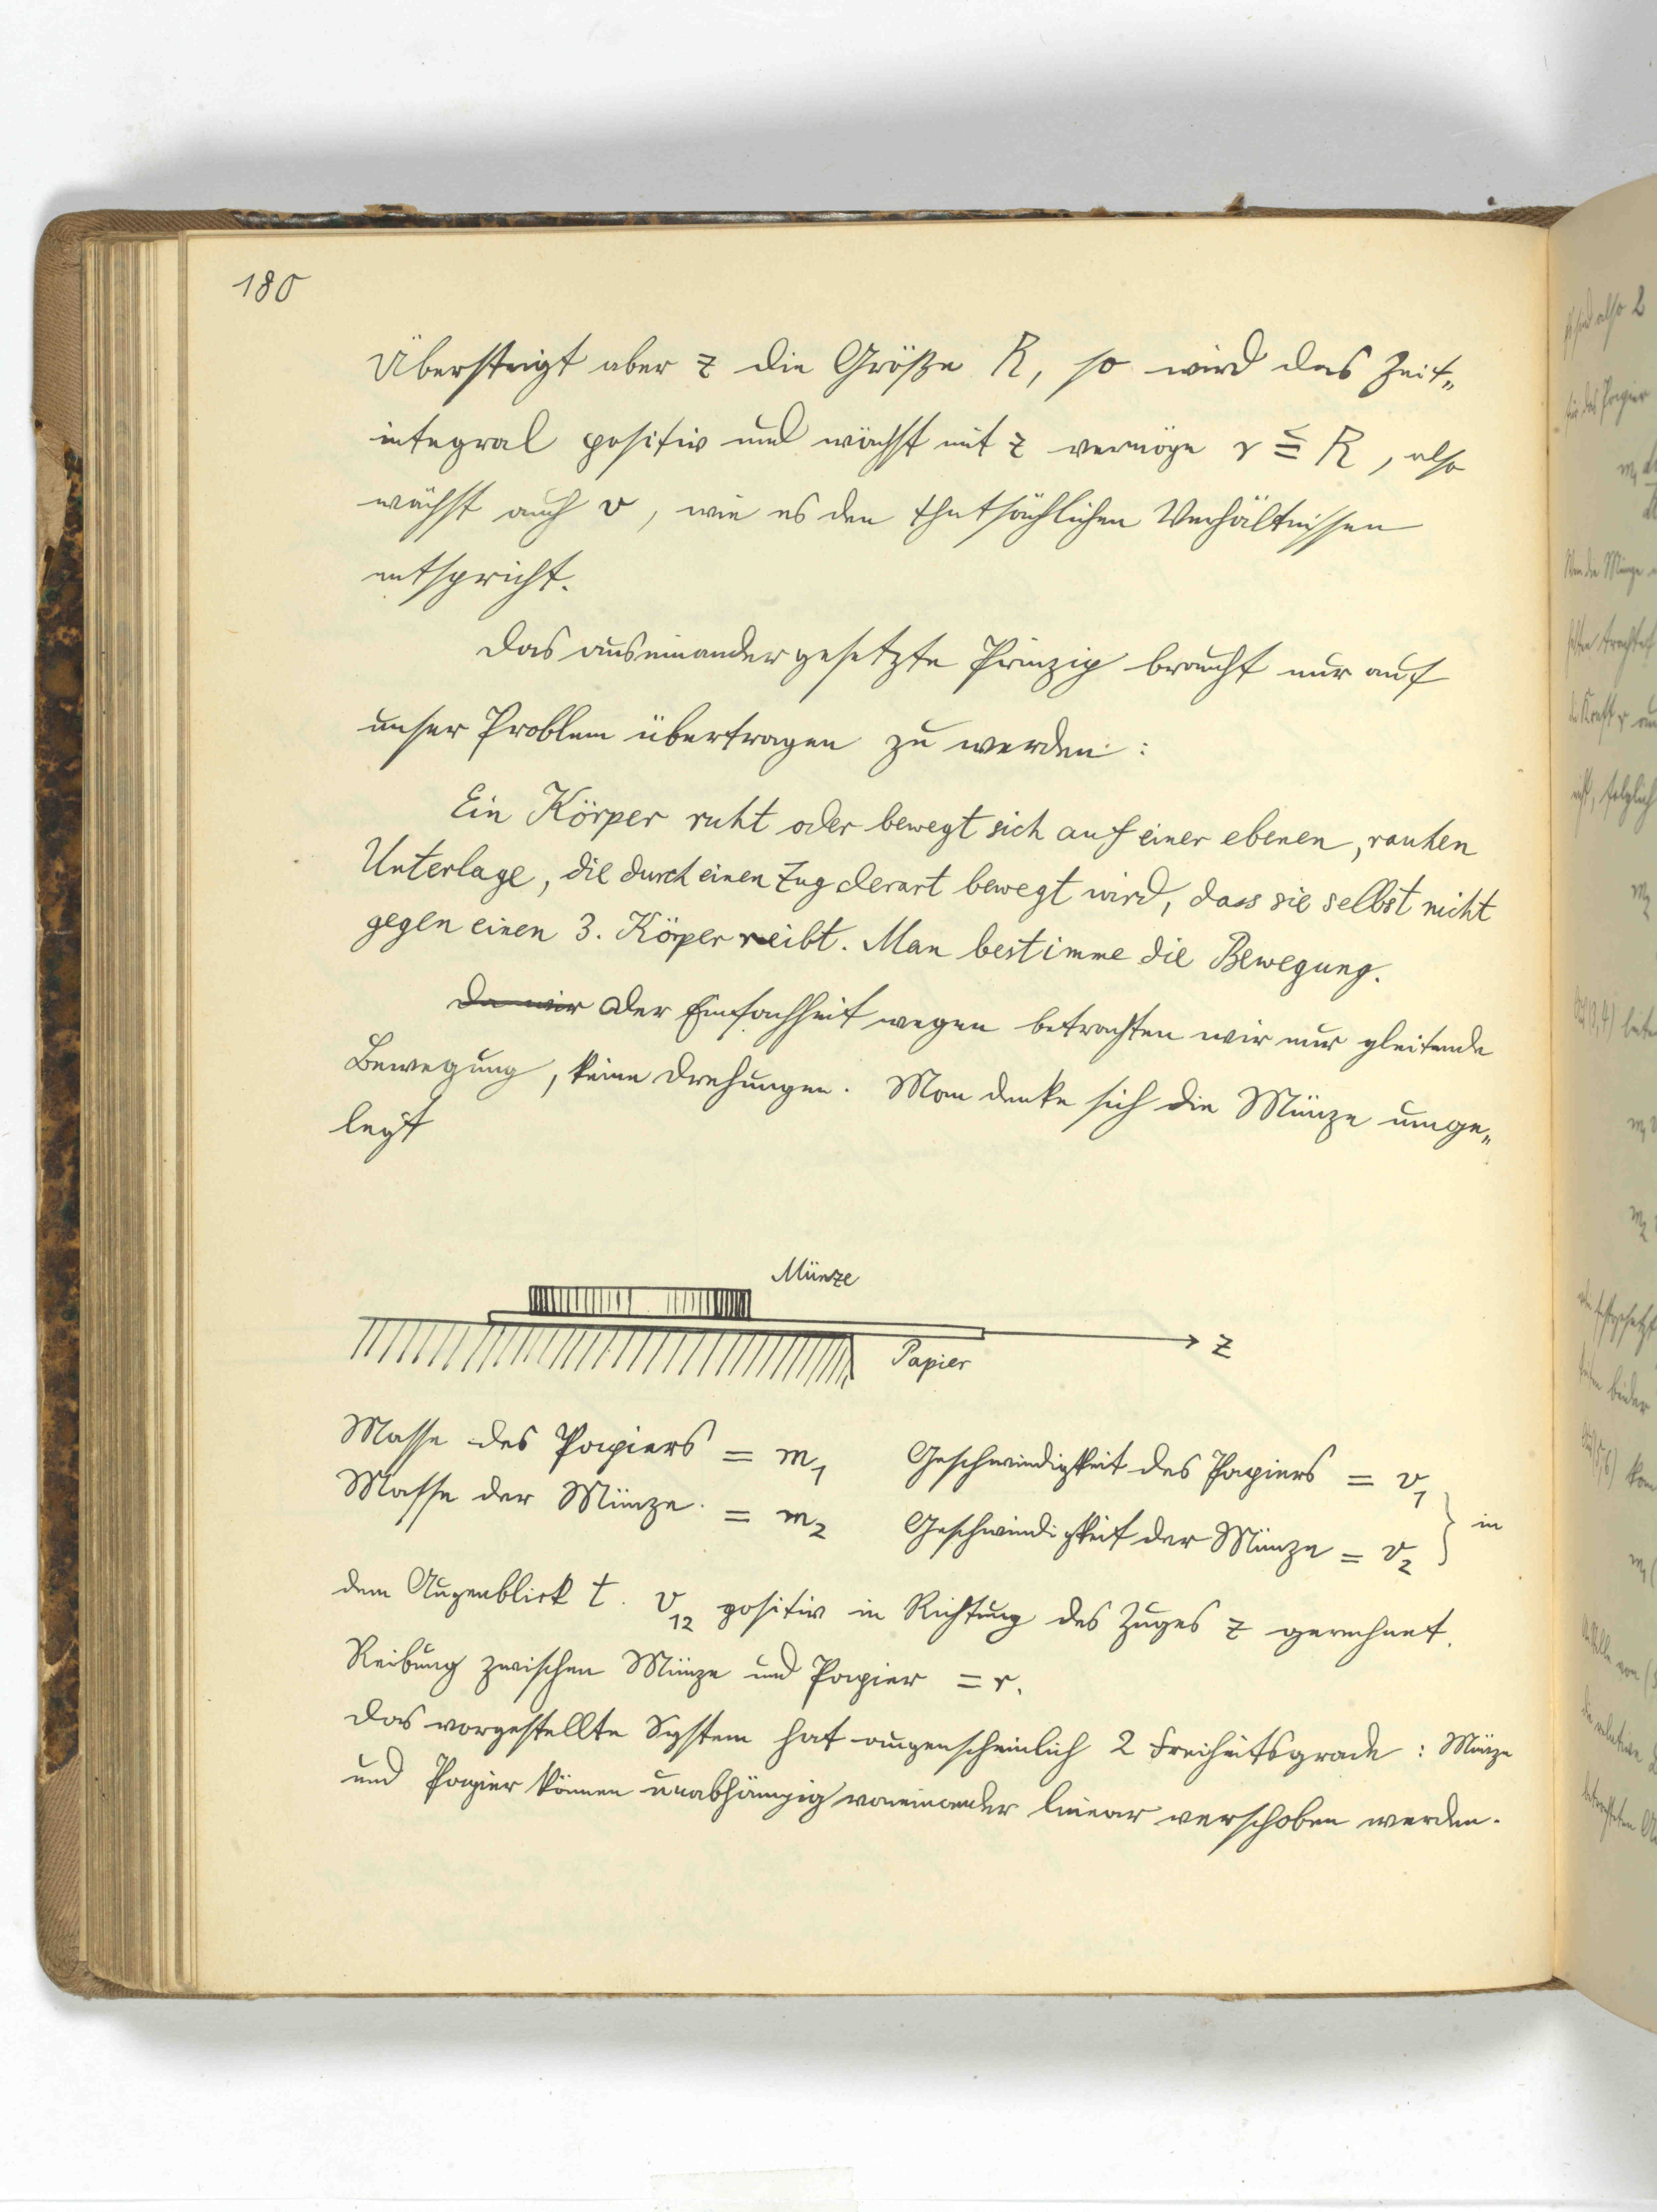 180
Übersteigt aber z die Größe R, so wird das Zeit„
integral positiv und wächst mit z vermöge r ≦ R, also
wächst auch v, wie es den thatsächlichen Verhältnissen
entspricht.
Das auseinandergesetzte Prinzip braucht nur auf
unser Problem übertragen zu werden:
Ein Körper ruht oder bewegt sich auf einer ebenen, rauhen
Unterlage, die durch einen Zug derart bewegt wird, dass sie selbst nicht
gegen einen 3. Körper reibt. Man bestimme die Bewegung.
Da wir Der Einfachheit wegen betrachten wir nur gleitende
Bewegung, keine Drehungen. Man denke sich die Münze umge„
legt
Münze
z
Papier
Masse des Papiers = m₁ Geschwindigkeit des Papiers = v₁
Masse der Münze = m₂ Geschwindigkeit der Münze = v₂ } in
dem Augenblick t. v₁₂ positiv in Richtung des Zuges z gerechnet.
Reibung zwischen Münze und Papier = r.
Das vorgestellte System hat augenscheinlich 2 Freiheitsgrade: Münze
und Papier können unabhängig voneinander linear verschoben werden.